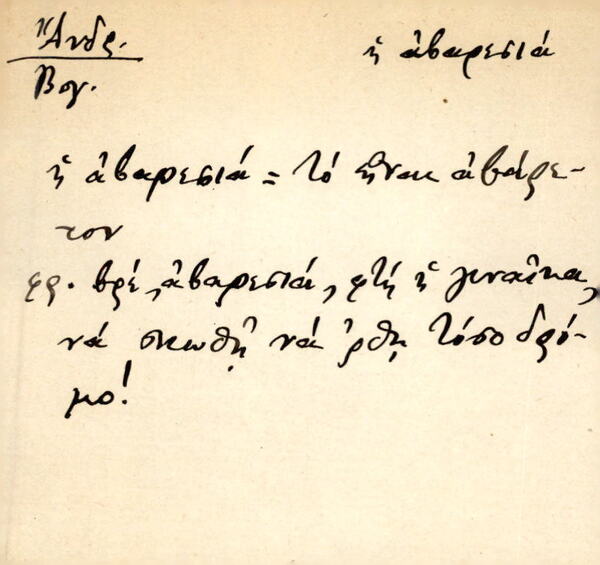 Ἄνδρ.
Βογ.
ἡ ἀβαρεσιά
ἡ ἀβαρεσιά = τό εἶναι ἀβάρε-
τον
φρ. βρέ, ἀβαρεσιά, φτή ἡ γυναῖκα,
νά σκωθῇ νά ἔρθῃ τόσο δρό-
μο!